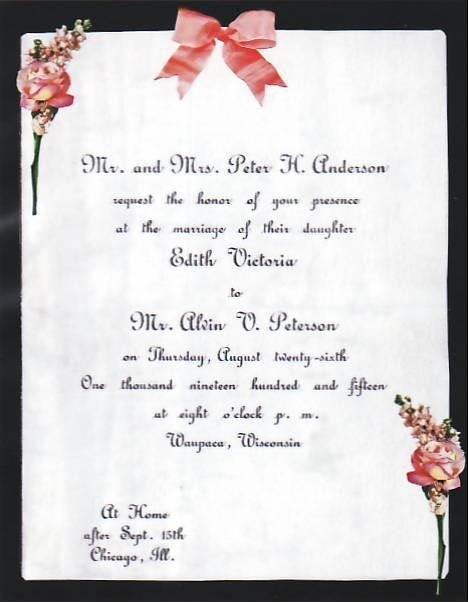 Mr. and Mrs. Peter H. Anderson
request the honor of your presence
at the marriage of their daughter
Edith Victoria
to
Mr. Alvin V. Peterson
on Thursday, August twenty-sixth
One thousand nineteen hundred and fifteen
at eight o'clock p. m.
Waupaca, Wisconsin
At Home
after Sept. 15th
Chicago, Ill.